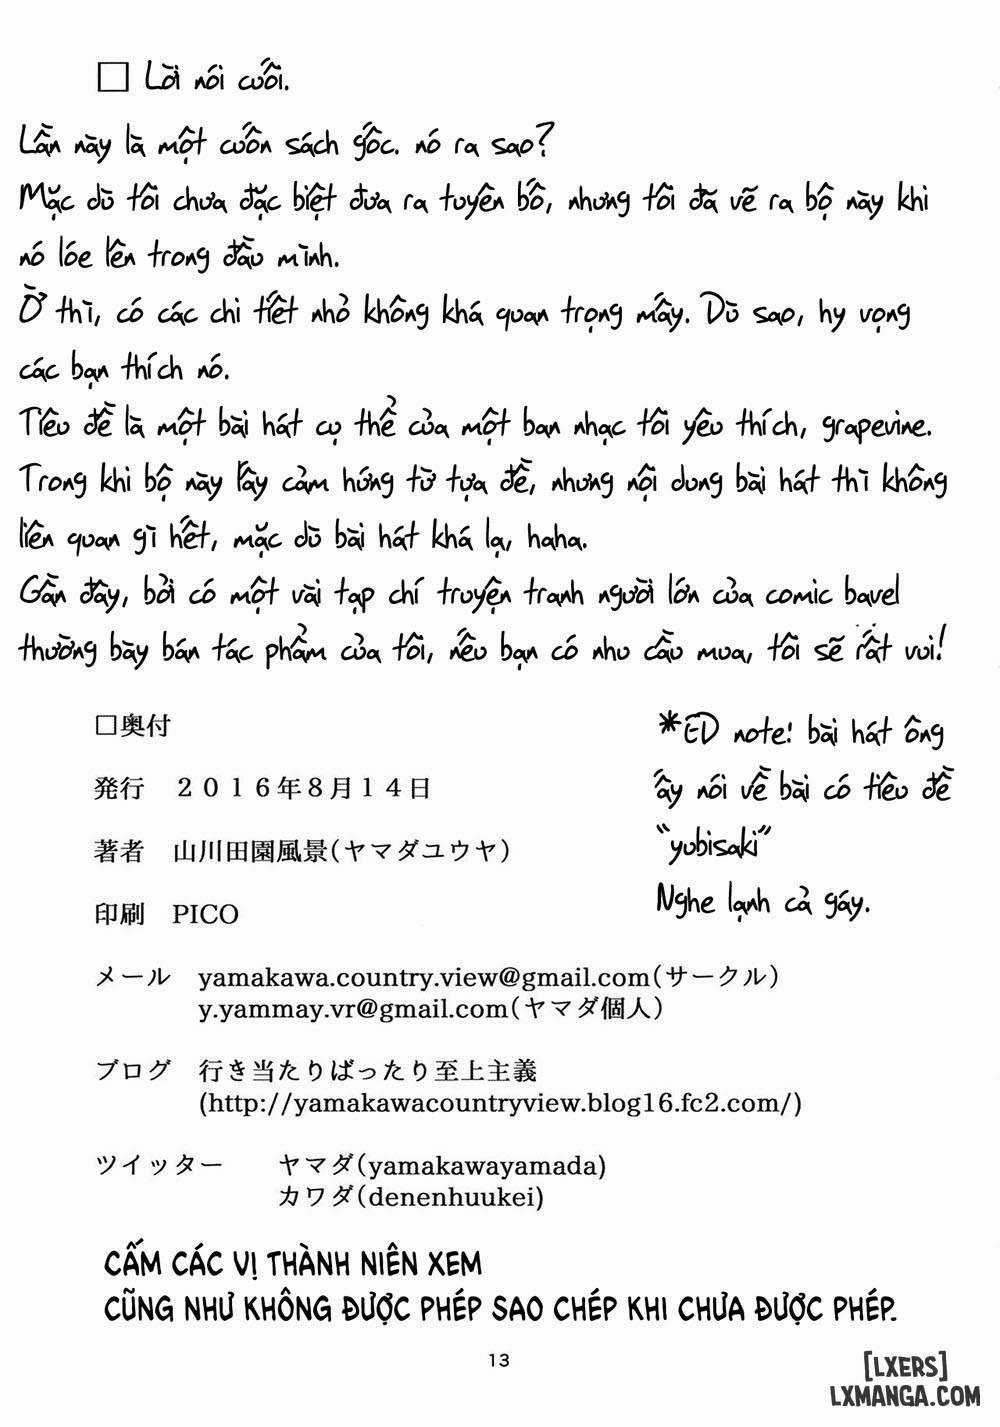 □ Lời nói cuối.
Lần này là một cuốn sách gốc. nó ra sao?
Mặc dù tôi chưa đặc biệt đưa ra tuyên bố, nhưng tôi đã vẽ ra bộ này khi
nó lóe lên trong đầu mình.
Ờ thì, có các chi tiết nhỏ không khá quan trọng mấy. Dù sao, hy vọng
các bạn thích nó.
Tiêu đề là một bài hát cụ thể của một ban nhạc tôi yêu thích, grapevine.
Trong khi bộ này lấy cảm hứng từ tựa đề, nhưng nội dung bài hát thì không
liên quan gì hết, mặc dù bài hát khá lạ, haha.
Gần đây, bởi có một vài tạp chí truyện tranh người lớn của comic bavel
thường bày bán tác phẩm của tôi, nếu bạn có nhu cầu mua, tôi sẽ rất vui!
□奥付
発行 2016年8月14日
著者 山川田園風景(ヤマダユウヤ)
印刷 PICO
メール yamakawa.country.view@gmail.com(サークル)
y.yammay.vr@gmail.com(ヤマダ個人)
ブログ 行き当たりばったり至上主義
(http://yamakawacountryview.blog16.fc2.com/)
ツイッター ヤマダ(yamakawayamada)
カワダ(denenhuukei)
*ED note! bài hát ông
ấy nói về bài có tiêu đề
"yubisaki"
Nghe lạnh cả gáy.
CẤM CÁC VỊ THÀNH NIÊN XEM
CŨNG NHƯ KHÔNG ĐƯỢC PHÉP SAO CHÉP KHI CHƯA ĐƯỢC PHÉP.
13
[LXERS]
LXMANGA.COM